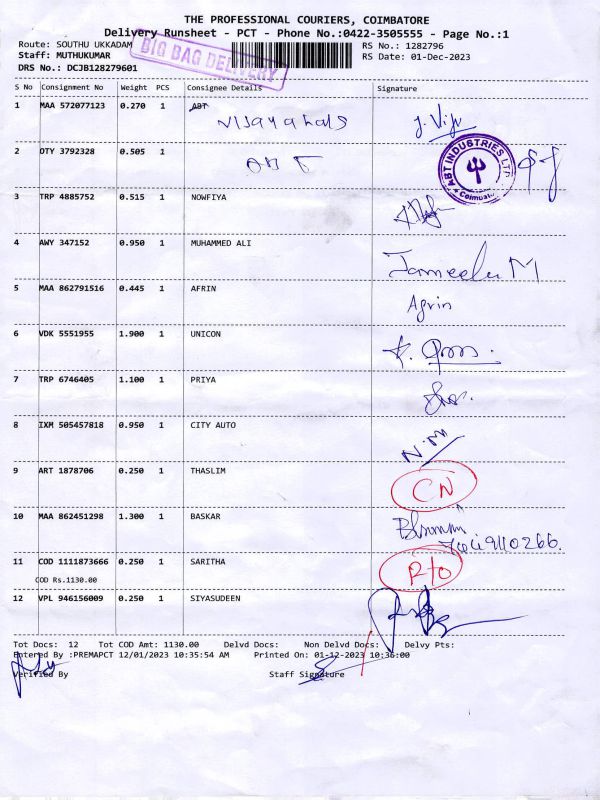 THE PROFESSIONAL COURIERS, COIMBATORE
Delivery Runsheet - PCT - Phone No.:0422-3505555 - Page No.:1
Route: SOUTHU UKKADAM
RS No.: 1282796
Staff: MUTHUKUMAR
RS Date: 01-Dec-2023
DRS No.: DCJB128279601
BIG BAG DELIVERY
S No Consignment No Weight PCS Consignee Details Signature
1 MAA 572077123 0.270 1 ABT
J. Viju
2 DTY 3792328 0.505 1
ABT INDUSTRIES LTD
3 TRP 4885752 0.515 1 NOWFIYA
4 AWY 347152 0.950 1 MUHAMMED ALI
Jameelu M
5 MAA 862791516 0.445 1 AFRIN
Afrin
6 VDK 5551955 1.900 1 UNICON
7 TRP 6746405 1.100 1 PRIYA
8 IXM 505457818 0.950 1 CITY AUTO
9 ART 1878706 0.250 1 THASLIM
CN
10 MAA 862451298 1.300 1 BASKAR
11 COD 1111873666 0.250 1 SARITHA
R/O
COD Rs.1130.00
12 VPL 946156009 0.250 1 SIYASUDEEN
Tot Docs: 12 Tot COD Amt: 1130.00 Delvd Docs: Non Delvd Docs: Delvy Pts:
Entered By :PREMAPCT 12/01/2023 10:35:54 AM Printed On: 01-12-2023 10:36:00
Verified By Staff Signature